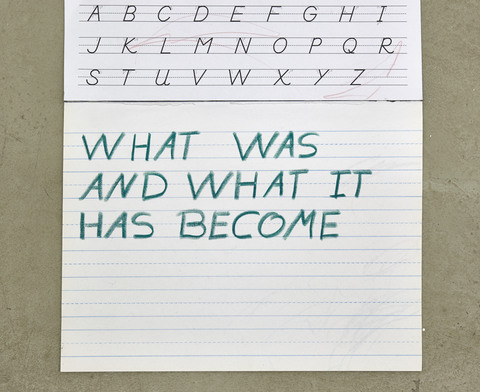 A B C D E F G H I
J K L M N O P Q R
S T U V W X Y Z
WHAT WAS
AND WHAT IT
HAS BECOME